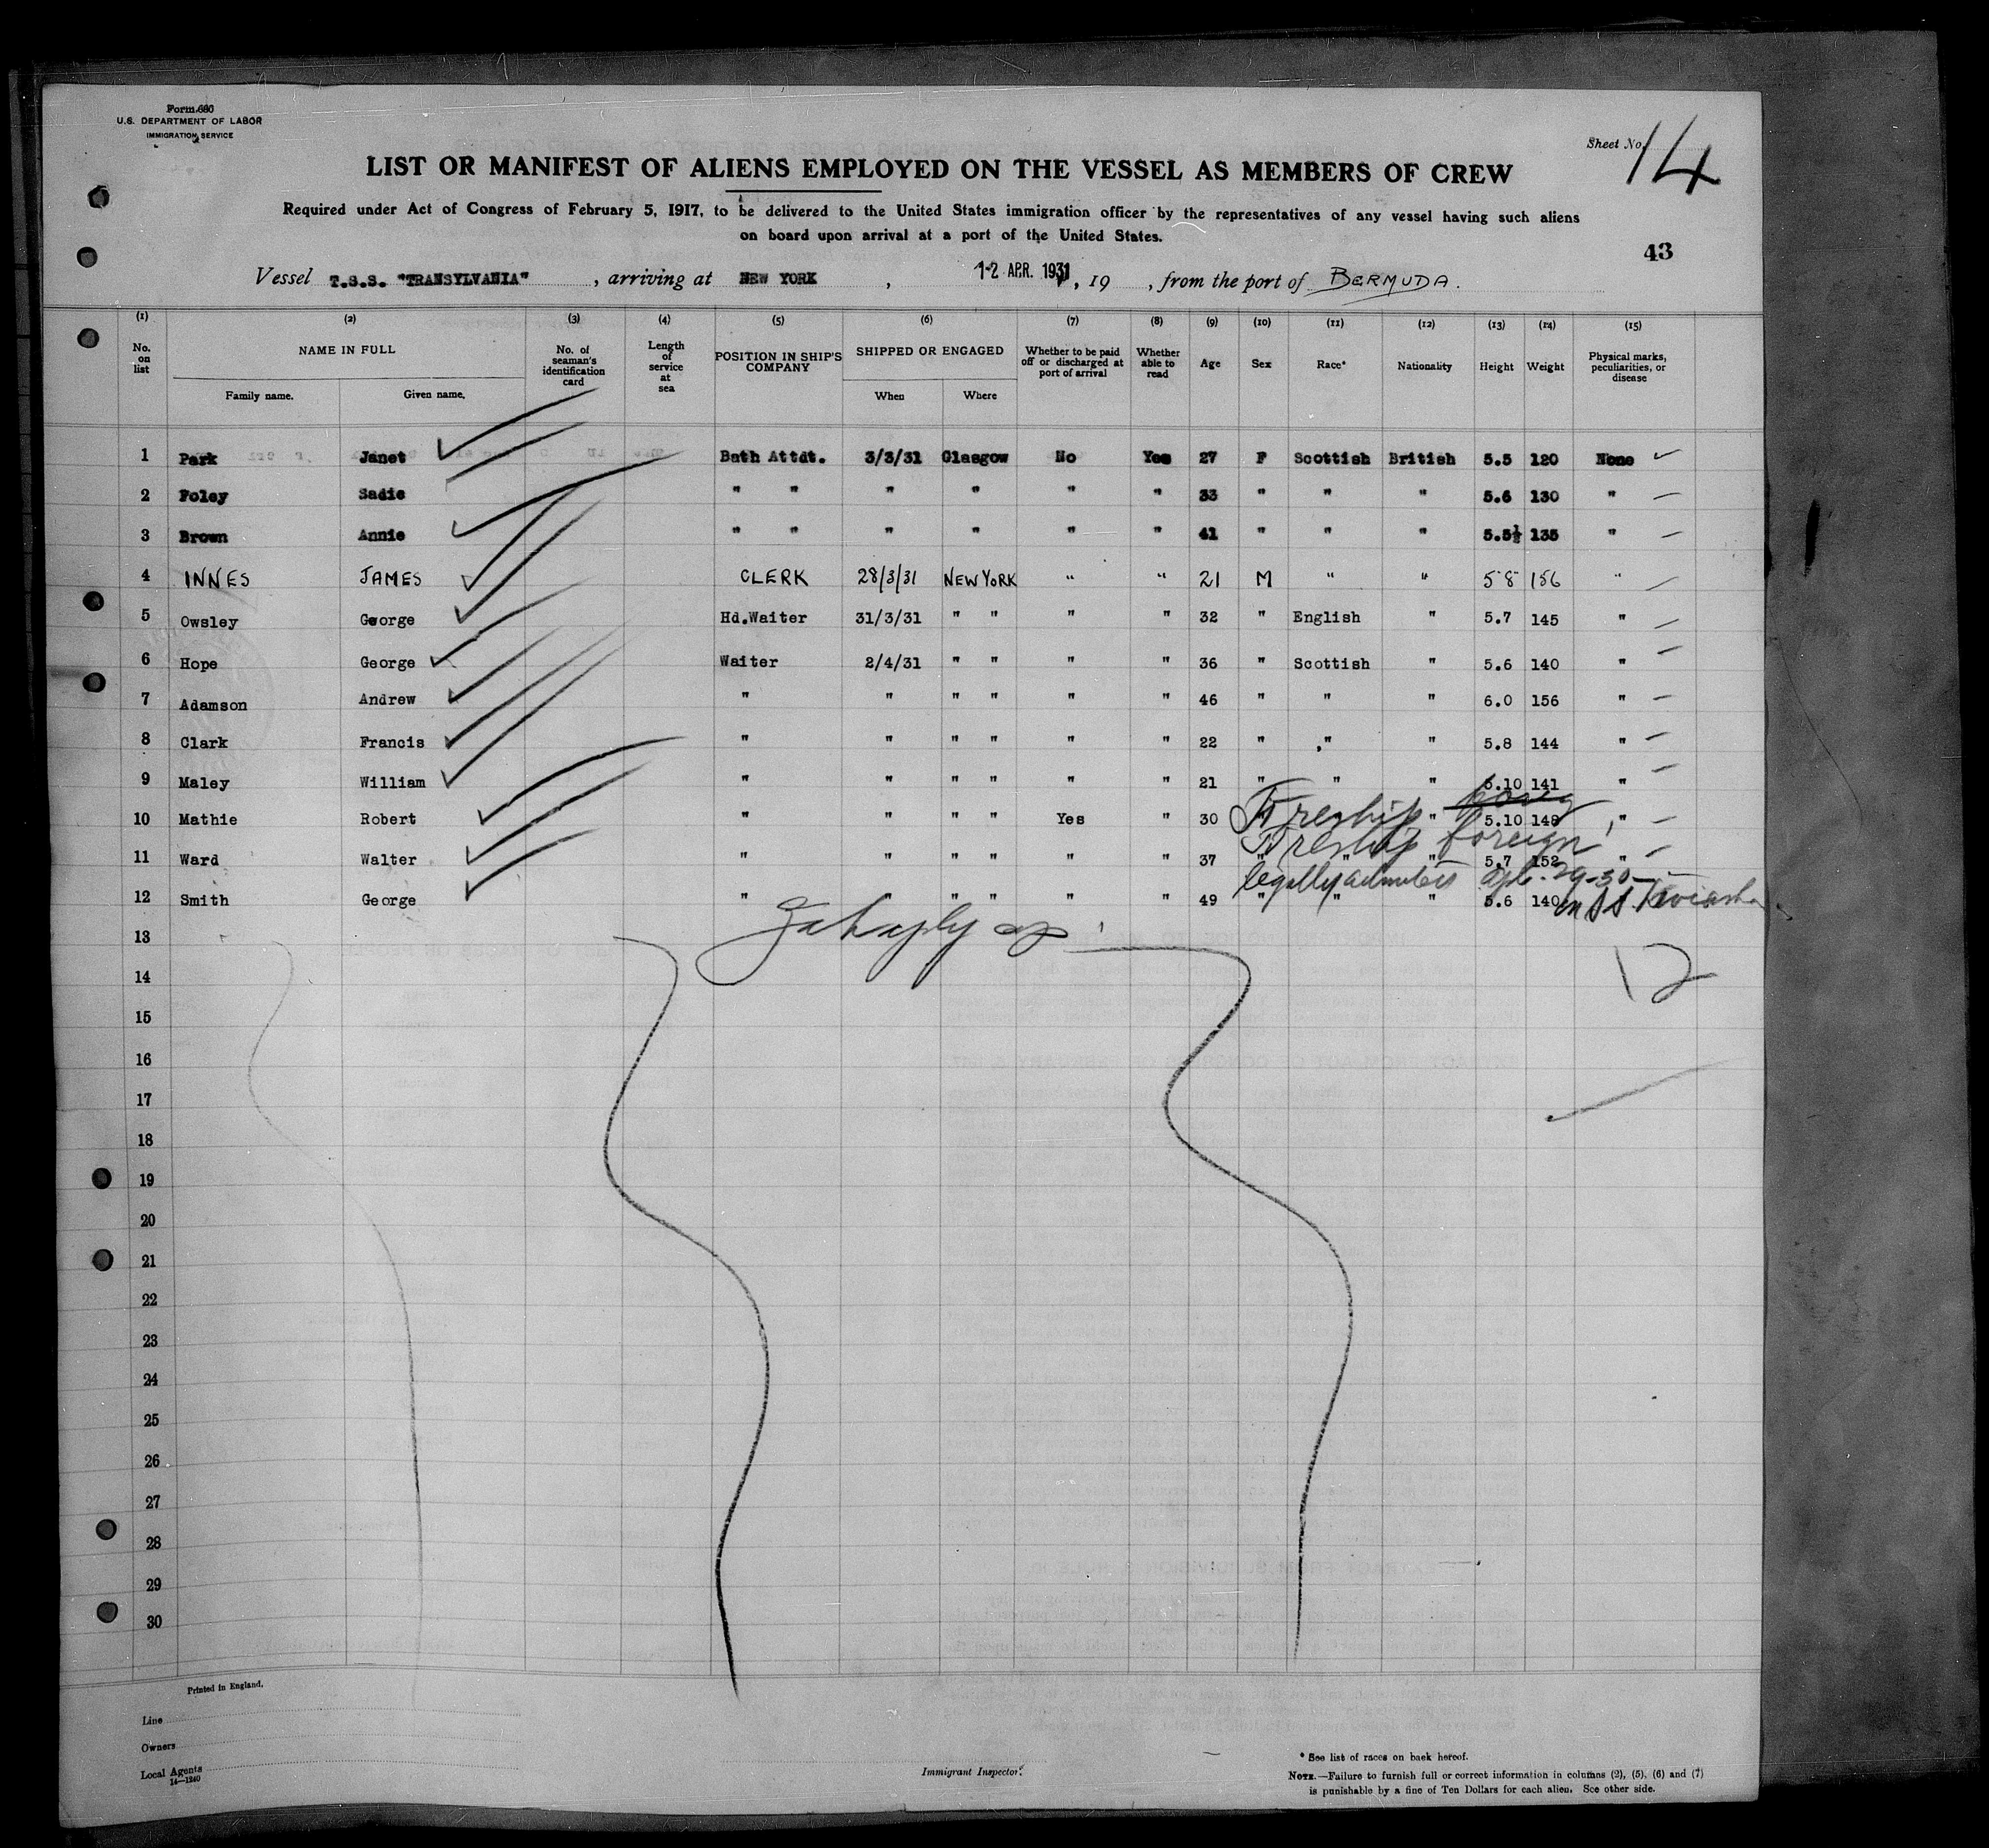 Form 680
U.S. DEPARTMENT OF LABOR
IMMIGRATION SERVICE
Sheet No. 14
LIST OR MANIFEST OF ALIENS EMPLOYED ON THE VESSEL AS MEMBERS OF CREW
Required under Act of Congress of February 5, 1917, to be delivered to the United States immigration officer by the representatives of any vessel having such aliens
on board upon arrival at a port of the United States.
43
Vessel T.S.S. "TRANSYLVANIA", arriving at NEW YORK, 12 APR. 1931, 19 , from the port of BERMUDA.
(1) (2) (3) (4) (5) (6) (7) (8) (9) (10) (11) (12) (13) (14) (15)
No. on list NAME IN FULL Family name. Given name. No. of seaman's identification card Length of service at sea POSITION IN SHIP'S COMPANY SHIPPED OR ENGAGED When Where Whether to be paid off or discharged at port of arrival Whether able to read Age Sex Race* Nationality Height Weight Physical marks, peculiarities, or disease
1 Park Janet Bath Attdt. 3/3/31 Glasgow No Yes 27 F Scottish British 5.5 120 None
2 Foley Sadie " " " " " " 33 " " " 5.6 130 "
3 Brown Annie " " " " " " 41 " " " 5.5½ 135 "
4 INNES JAMES CLERK 28/3/31 NEW YORK " " 21 M " " 5 8 156 "
5 Owsley George Hd.Waiter 31/3/31 " " " " 32 " English " 5.7 145 "
6 Hope George Waiter 2/4/31 " " " " 36 " Scottish " 5.6 140 "
7 Adamson Andrew " " " " " " 46 " " " 6.0 156 "
8 Clark Francis " " " " " " 22 " " " 5.8 144 "
9 Maley William " " " " " " 21 " " " 5.10 141
10 Mathie Robert " " " " Yes " 30 " 5.10 148 "
11 Ward Walter " " " " " " 37 " " " 5.7 152 "
foreign
legally admitted Apl. 29-30
12 Smith George " " " " " " 49 " " " 5.6 140
13
14
12
15
16
17
18
19
20
21
22
23
24
25
26
27
28
29
30
Printed in England.
Line
Owners
Local Agents
14—1240
Immigrant Inspector.
* See list of races on back hereof.
NOTE.—Failure to furnish full or correct information in columns (2), (5), (6) and (7)
is punishable by a fine of Ten Dollars for each alien. See other side.